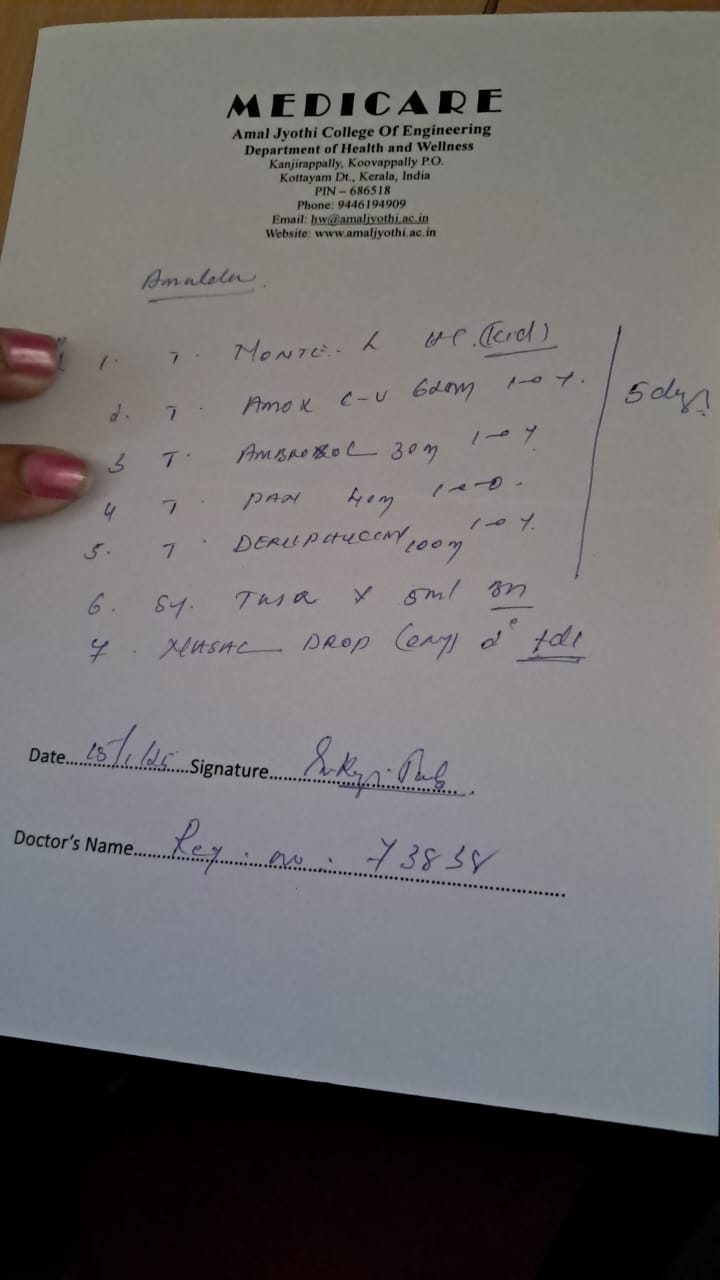 MEDICARE
Amal Jyothi College Of Engineering
Department of Health and Wellness
Kanjirappally, Koovappally P.O.
Kottayam Dt., Kerala, India
PIN – 686518
Phone: 9446194909
Email: hw@amaljyothi.ac.in
Website: www.amaljyothi.ac.in
1. T. MONTE.. L (kid)
2. T. AMOX C-V
3 T. AMBROXOL 30m
4 T. PAN 40m
5. T. 100m
6. Sy. TUSQ X 5ml
7. DROP
5 days
Date.....15/1/25...Signature.........
Doctor's Name..... Reg. no. 73838